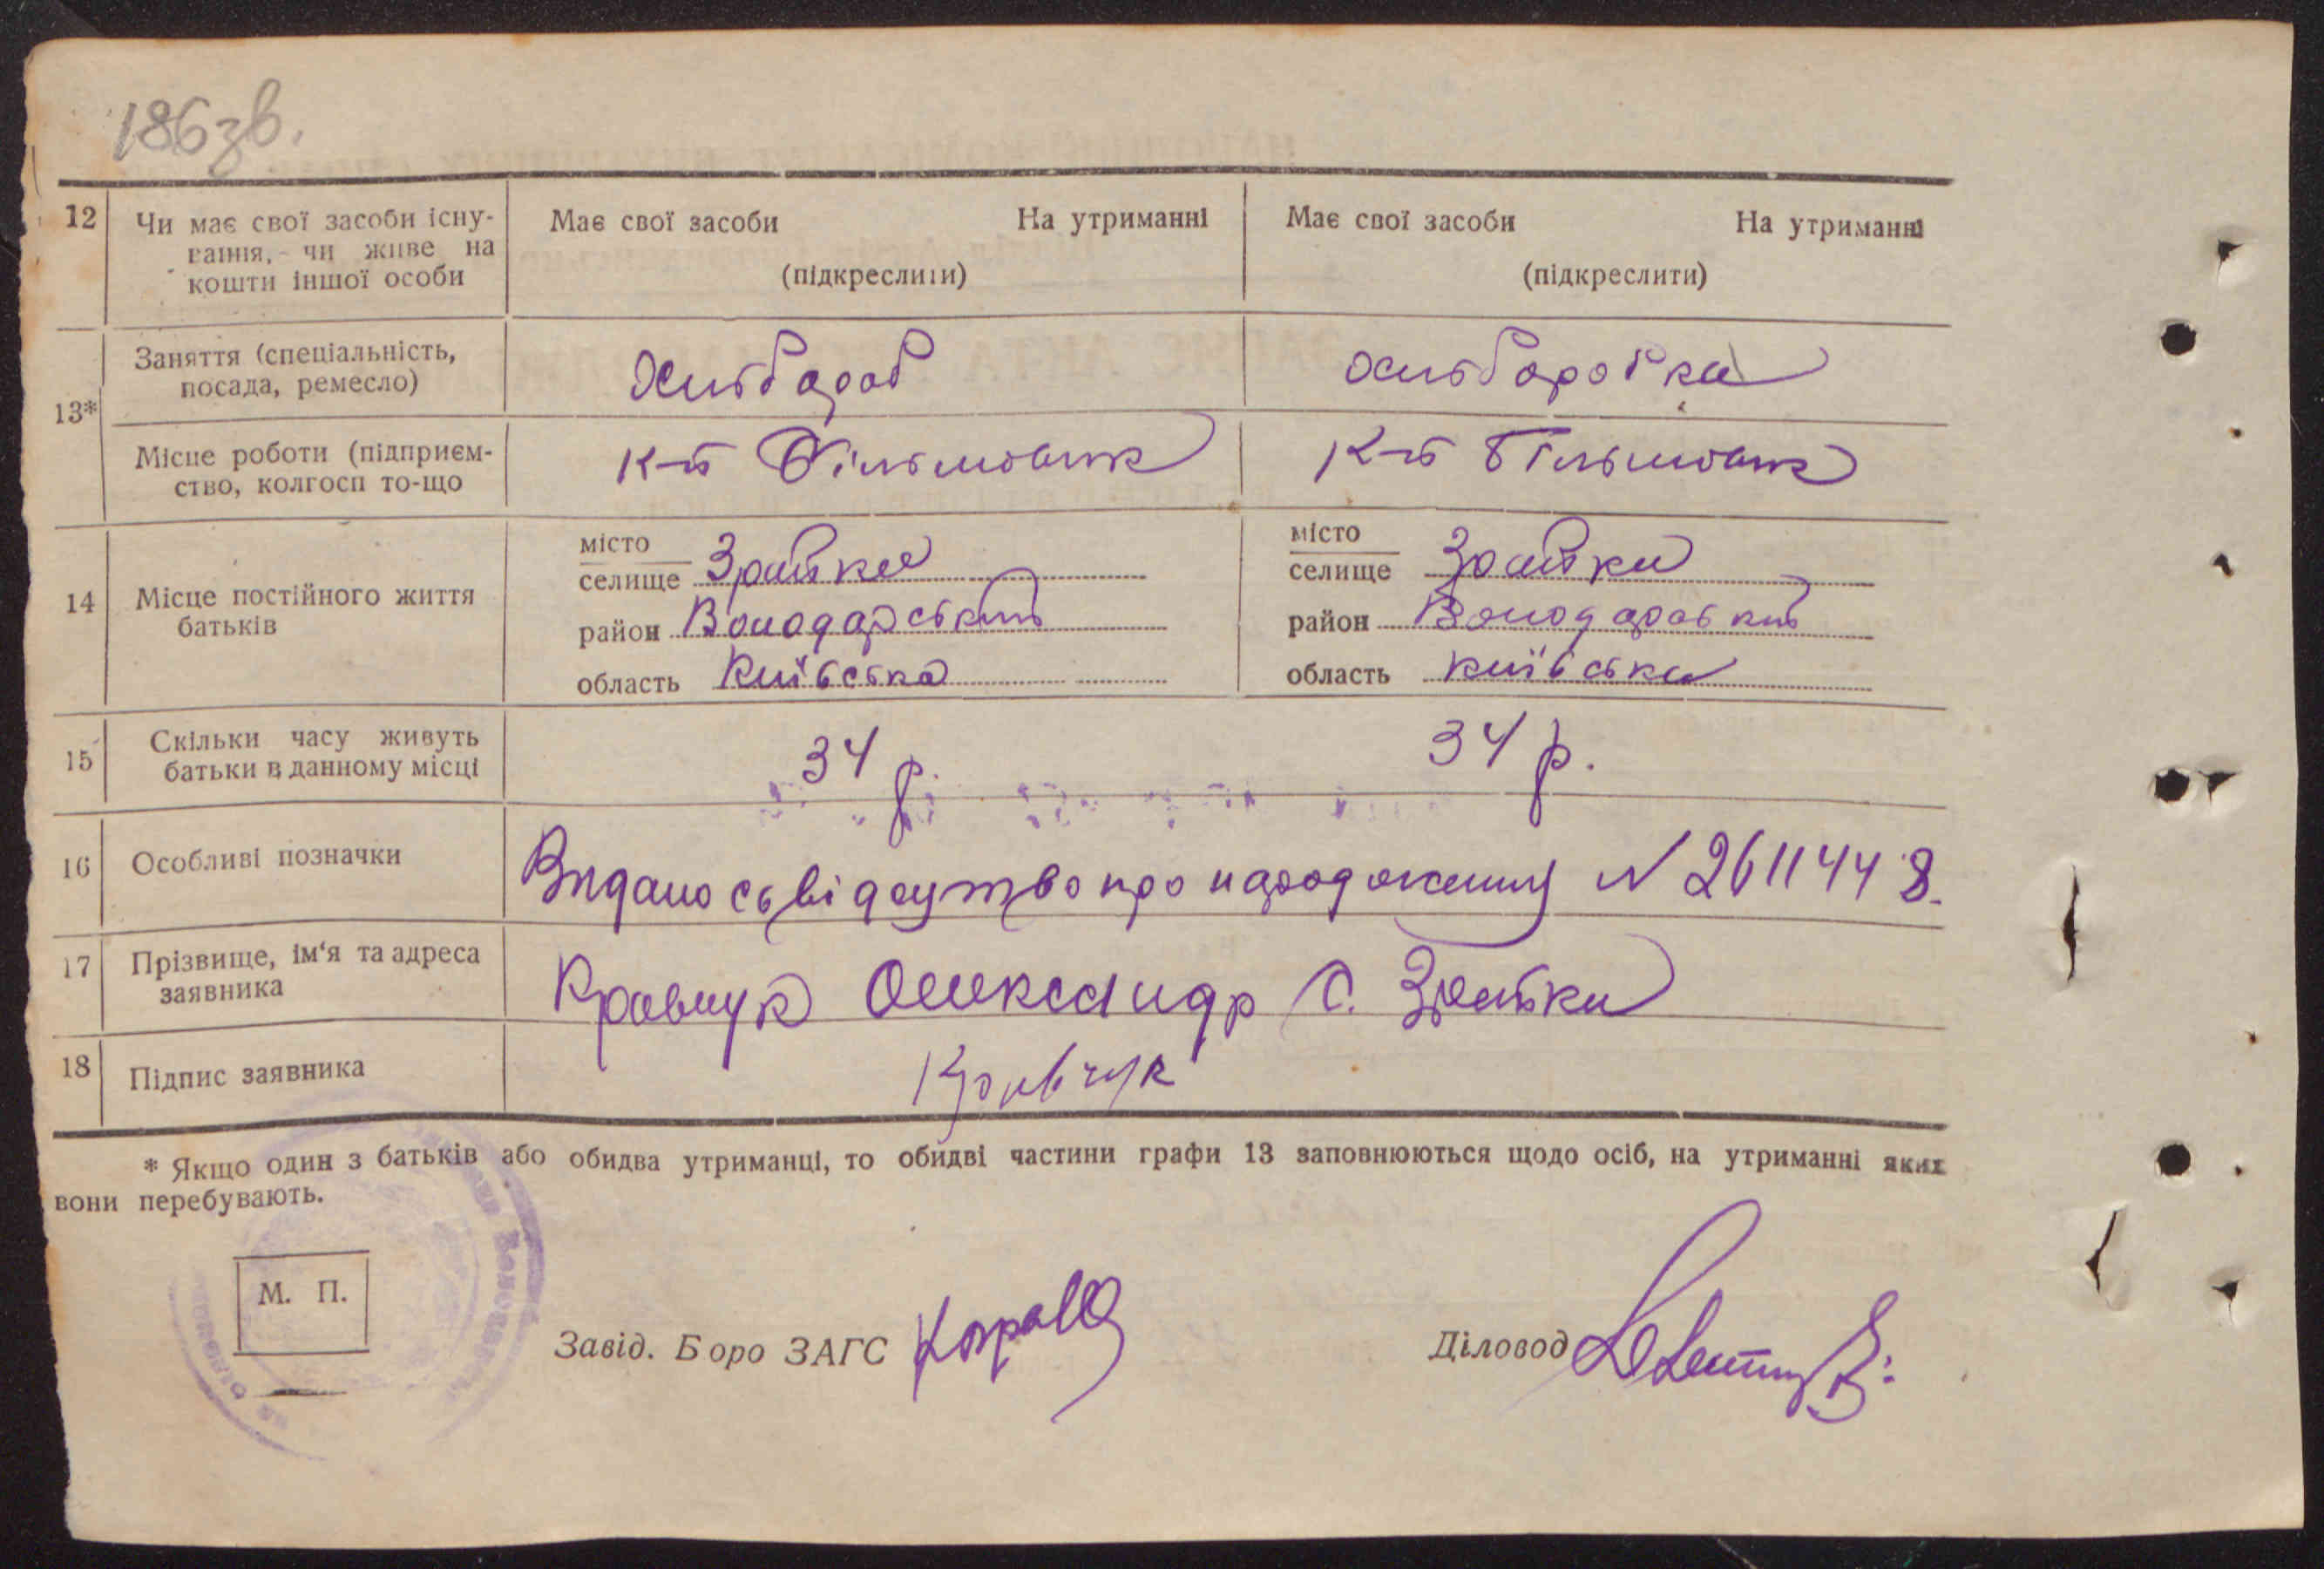 186 зв.
12 Чи має свої засоби існу- Має свої засоби На утриманні Має свої засоби На утриманні
вання, чи живе на
кошти іншої особи (підкреслити) (підкреслити)
13* Заняття (спеціальність, Хлібороб Хліборобка
посада, ремесло)
Місце роботи (підприєм- к-п Більшовик к-п Більшовик
ство, колгосп то-що
14 Місце постійного життя
батьків
місто місто
селище Зрайки селище Зрайки
район Володарський район Володарський
область Київська область Київська
15 Скільки часу живуть 34 р. 34 р.
батьки в данному місці
16 Особливі позначки Видано свідоцтво про народження N 2611448.
17 Прізвище, ім'я та адреса Кравчук Олександр с. Зрайки
заявника
18 Підпис заявника Кравчук
* Якщо один з батьків або обидва утриманці, то обидві частини графи 13 заповнюються щодо осіб, на утриманні яких
вони перебувають.
М. П.
Завід. Боро ЗАГС Діловод